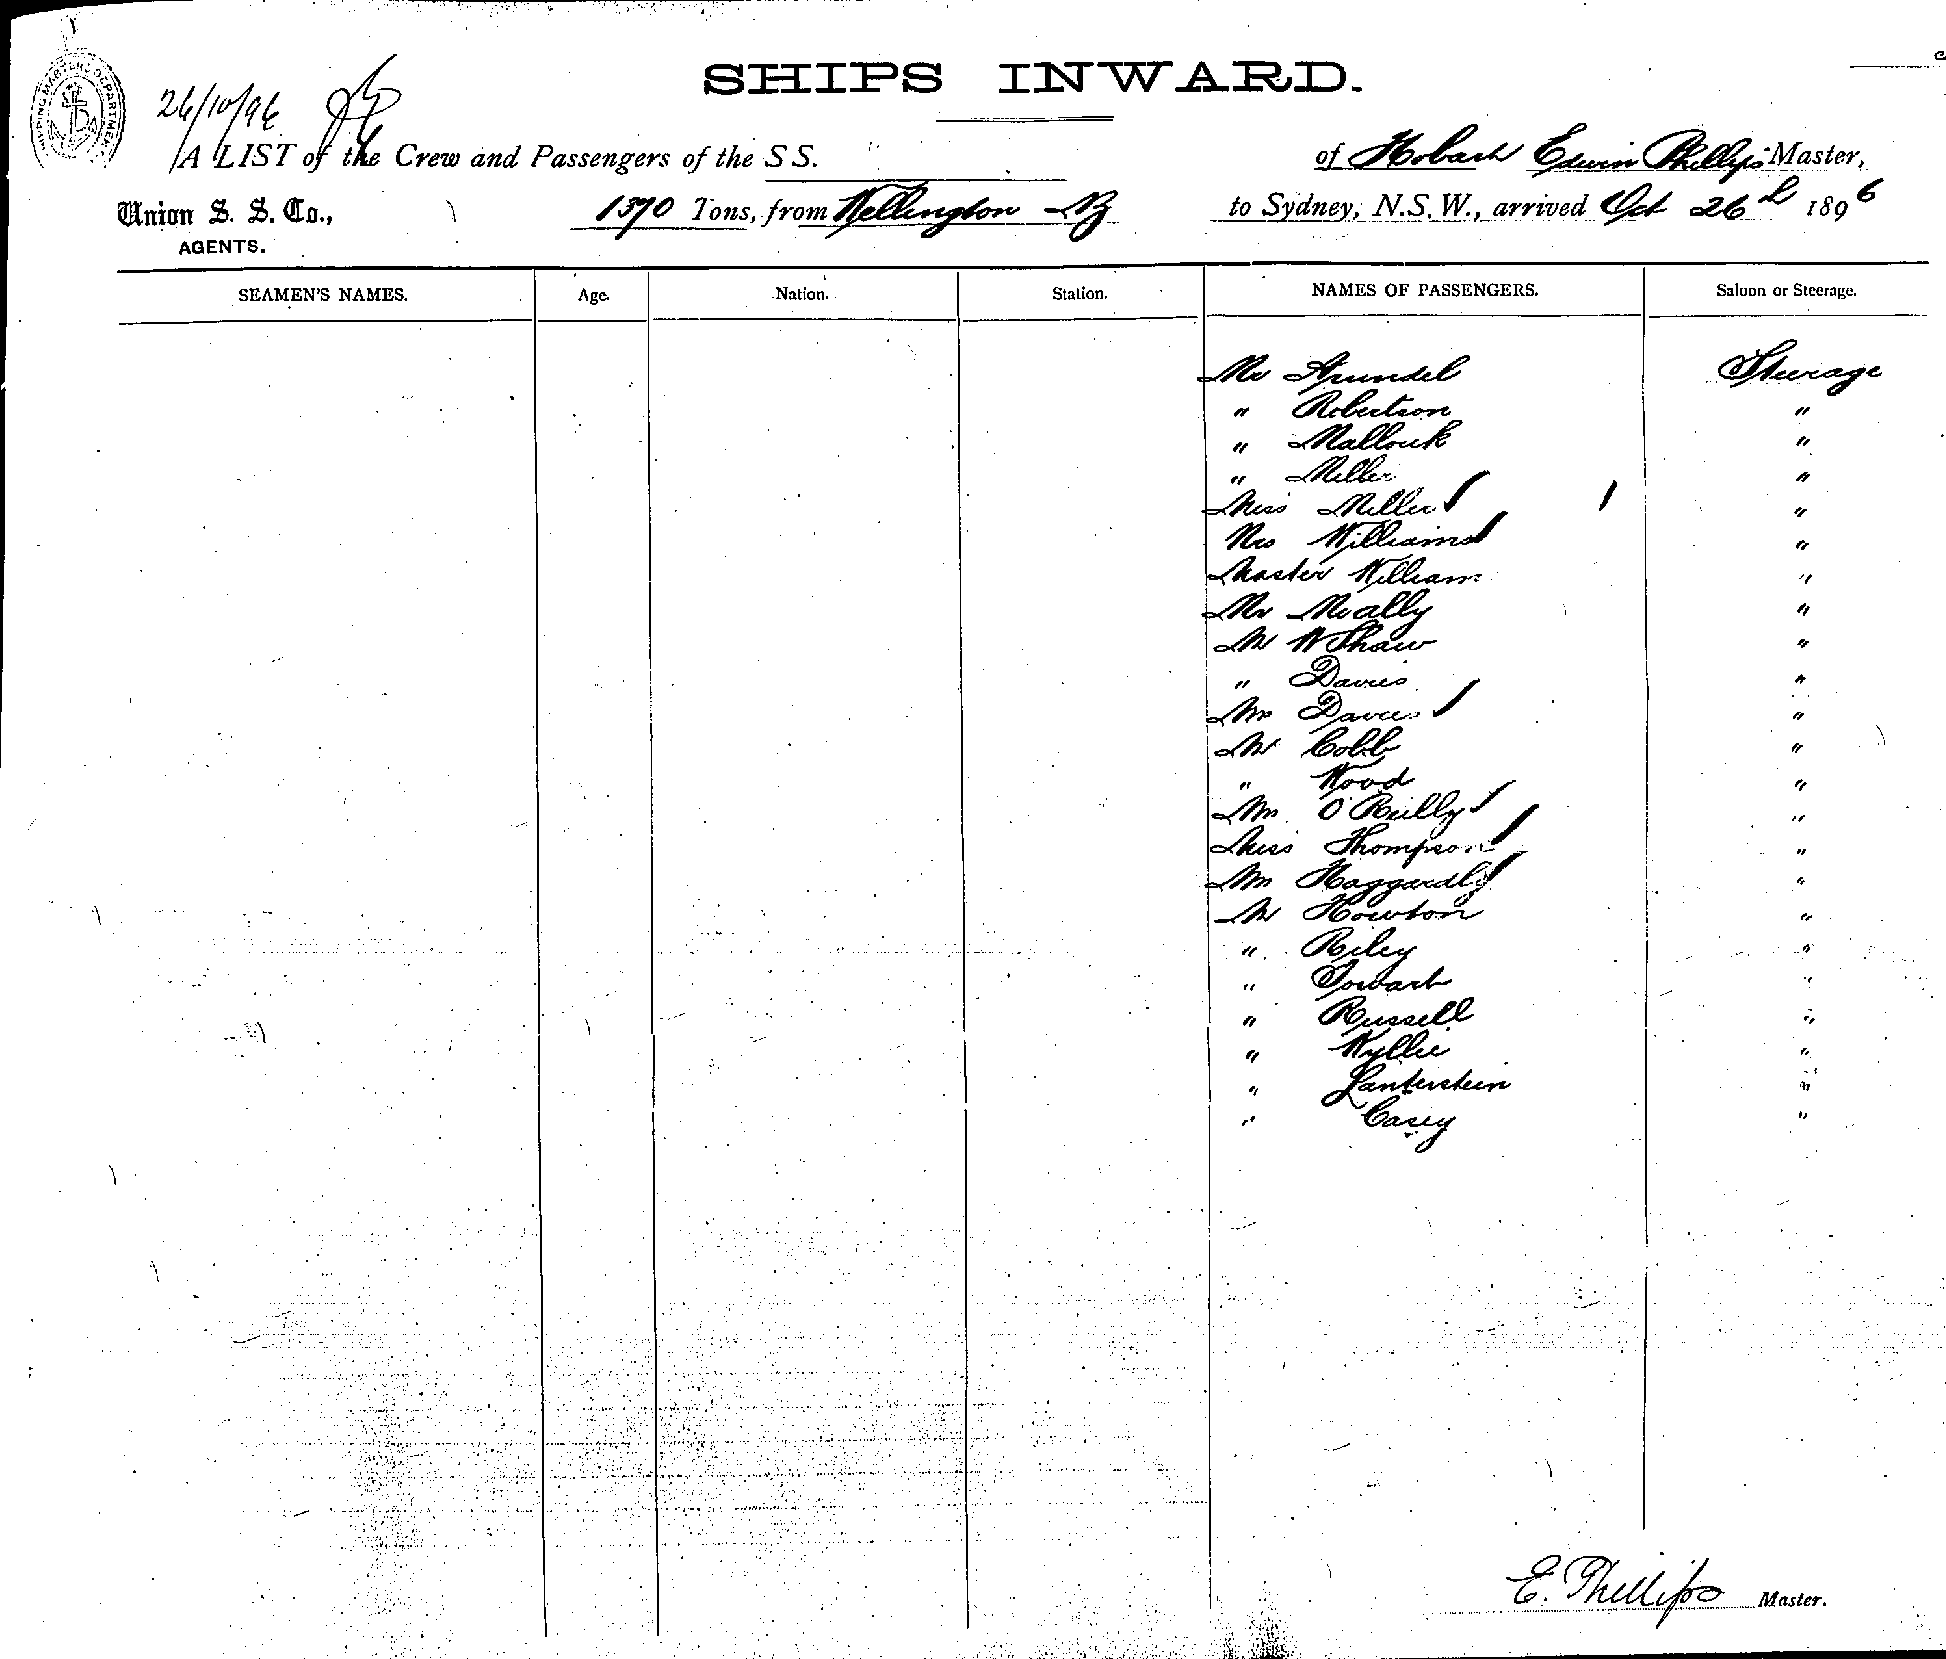 SHIPS INWARD.
26/10/96
A LIST of the Crew and Passengers of the S S. of Hobart Edwin Phillips Master,
Union S. S. Co., 1370 Tons, from Wellington NZ to Sydney, N.S.W., arrived Oct 26th 1896
AGENTS.
SEAMEN'S NAMES. Age. Nation. Station. NAMES OF PASSENGERS. Saloon or Steerage.
Mr Arundel Steerage
" Robertson "
" Mallouk "
" Miller "
Miss Miller "
Mrs Williams "
Master William "
Mr Meally "
Mr W Shaw "
" Davies "
Mrs Davies "
Mr Cobb "
" Wood "
Mrs O'Reilly "
Miss Thompson "
Mrs Haggardly "
Mr Howton "
" Riley "
" Towart "
" Russell "
" Wyllie "
" Lanterstein "
" Casey "
E. Phillips Master.